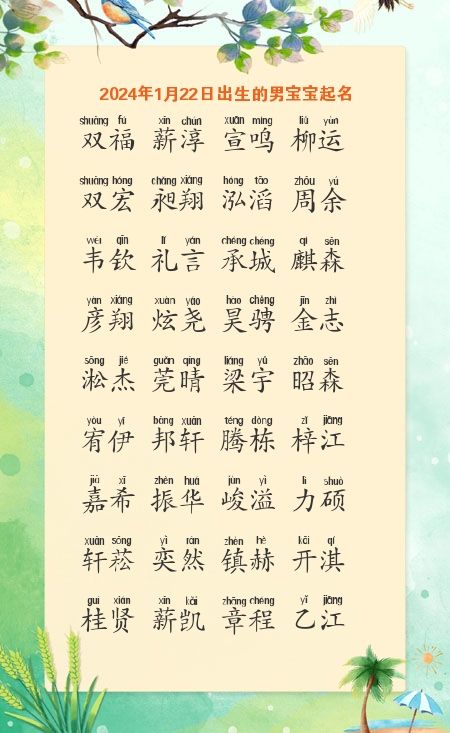 2024年1月22日出生的男宝宝起名
shuāng fú xīn chún xuān míng liǔ yùn
双福 薪淳 宣鸣 柳运
shuāng hóng chǎng xiáng hóng tāo zhōu yú
双宏 昶翔 泓滔 周余
wéi qīn lǐ yán chéng chéng qí sēn
韦钦 礼言 承城 麒森
yàn xiáng xuàn yáo hào chěng jīn zhì
彦翔 炫尧 昊骋 金志
sōng jié guǎn qíng liáng yǔ zhāo sēn
淞杰 莞晴 梁宇 昭森
yòu yī bāng xuān téng dòng zǐ jiāng
宥伊 邦轩 腾栋 梓江
jiā xī zhèn huá jùn yì lì shuò
嘉希 振华 峻溢 力硕
xuān sōng yì rán zhèn hè kāi qí
轩菘 奕然 镇赫 开淇
guì xián xīn kǎi zhāng chéng yǐ jiāng
桂贤 薪凯 章程 乙江